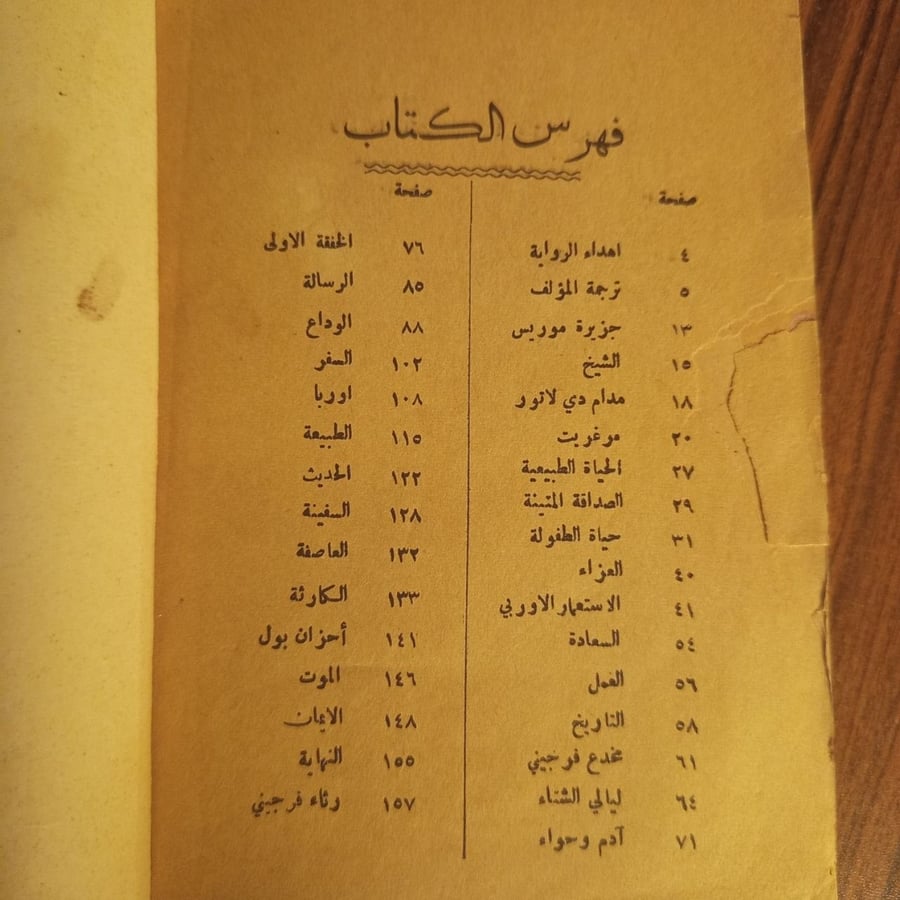 فهرس الكتاب
صفحة
٤ اهداء الرواية
٥ ترجمة المؤلف
١٣ جزيرة موريس
١٥ الشيخ
١٨ مدام دي لاتور
٢٠ مرغريت
٢٧ الحياة الطبيعية
٢٩ الصداقة المتينة
٣١ حياة الطفولة
٤٠ العزاء
٤١ الاستعمار الاوربي
٥٤ السعادة
٥٦ العمل
٥٨ التاريخ
٦١ مخدع فرجيني
٦٤ ليالي الشتاء
٧١ آدم وحواء
صفحة
٧٦ الخفقة الاولى
٨٥ الرسالة
٨٨ الوداع
١٠٢ السفر
١٠٨ اوربا
١١٥ الطبيعة
١٢٢ الحديث
١٢٨ السفينة
١٣٢ العاصفة
١٣٣ الكارثة
١٤١ أحزان بول
١٤٦ الموت
١٤٨ الايمان
١٥٥ النهاية
١٥٧ رثاء فرجيني